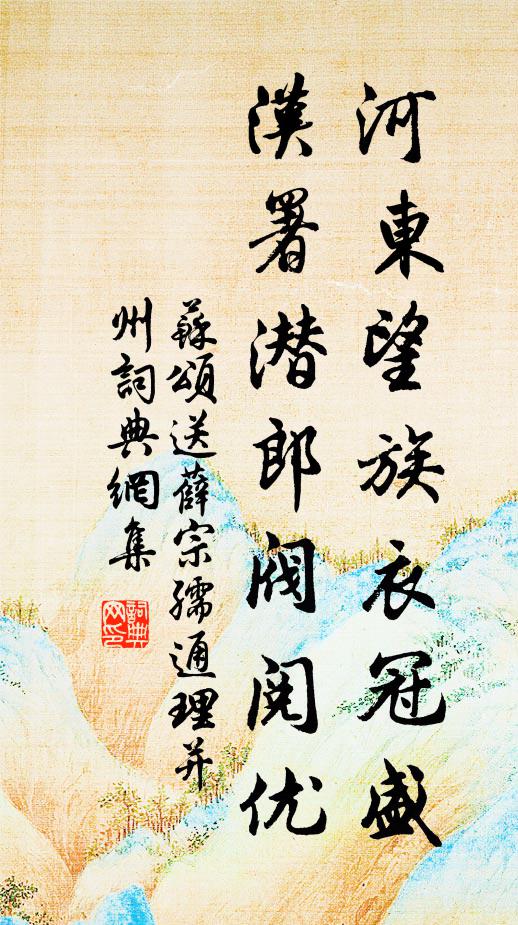 河東望族衣冠盛
漢署潜郎阀阅优
蘇頌送薛宗孺通理并
州詞典網集
詞典網印